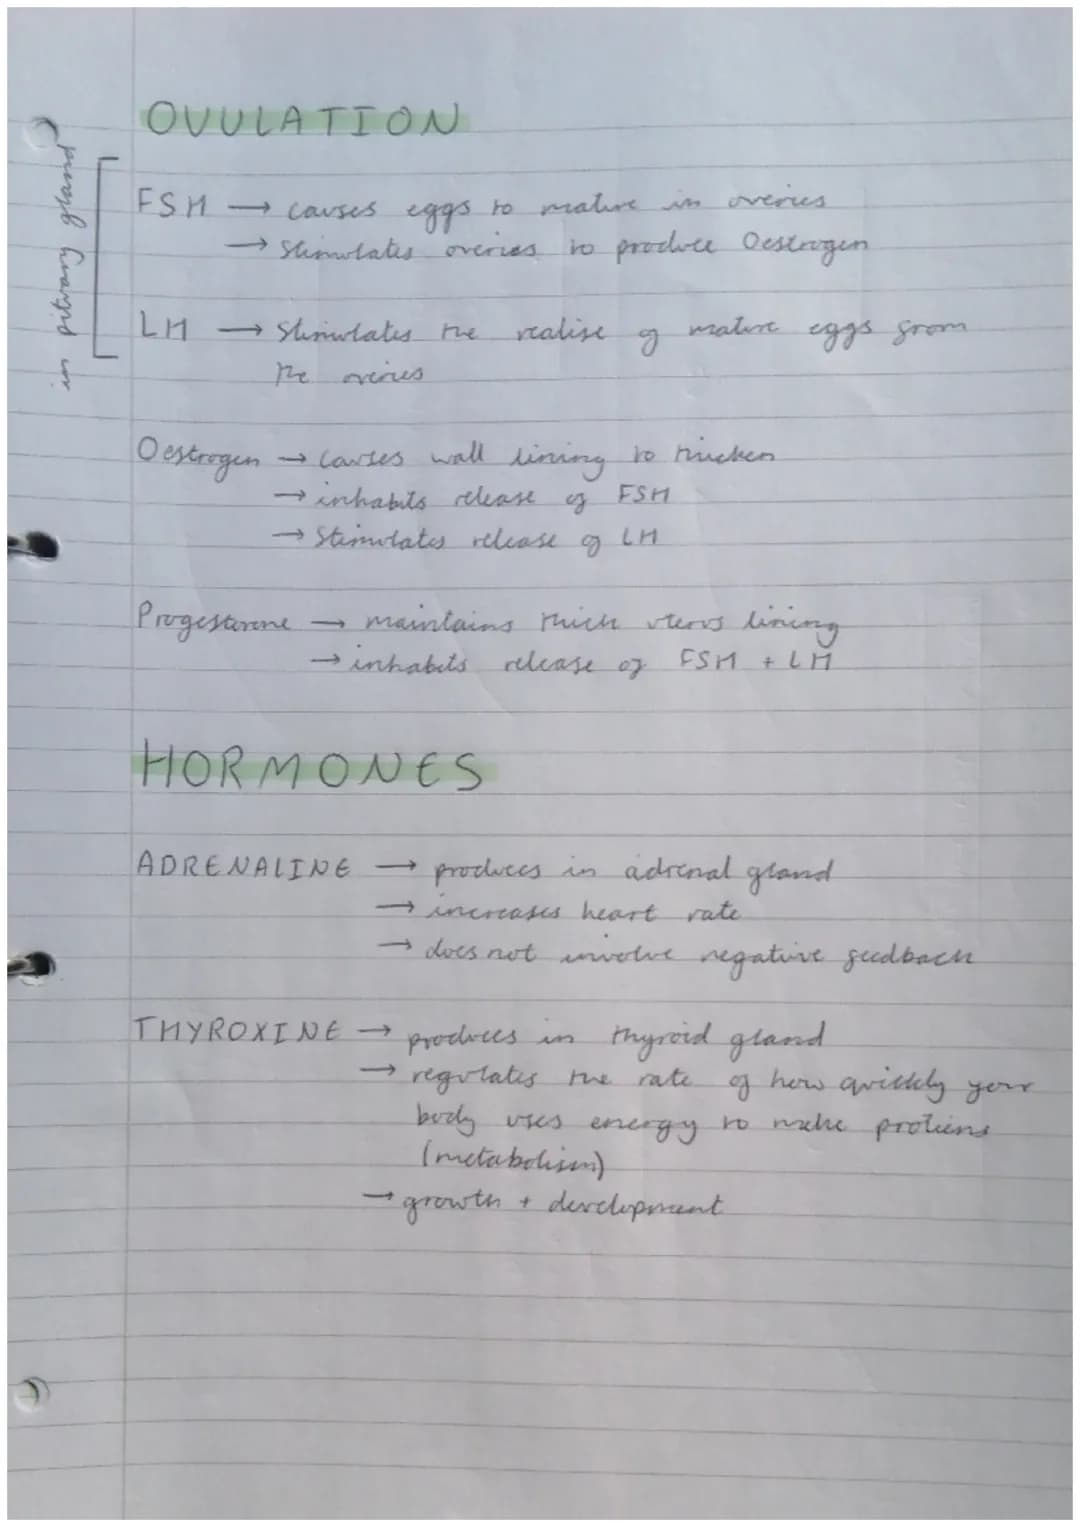 OVULATION
in pitvary gland
FSH → causes eggs to mature in overies
→ Stimulates overies to produce Oestrogen
LH → Stimulates the realise of mature eggs from
the overies
Oestrogen → causes wall lining to thicken
→ inhabits release of FSH
→ Stimulates release of LH
Progesterone → maintains thick uterus lining
→ inhabits release of FSH + LH
HORMONES
ADRENALINE → produces in adrenal gland
→ increases heart rate
→ does not involve negative feedback
THYROXINE → produces in thyroid gland
→ regulates the rate of how quickly your
body uses energy to make protiens
(metabolism)
→ growth + development